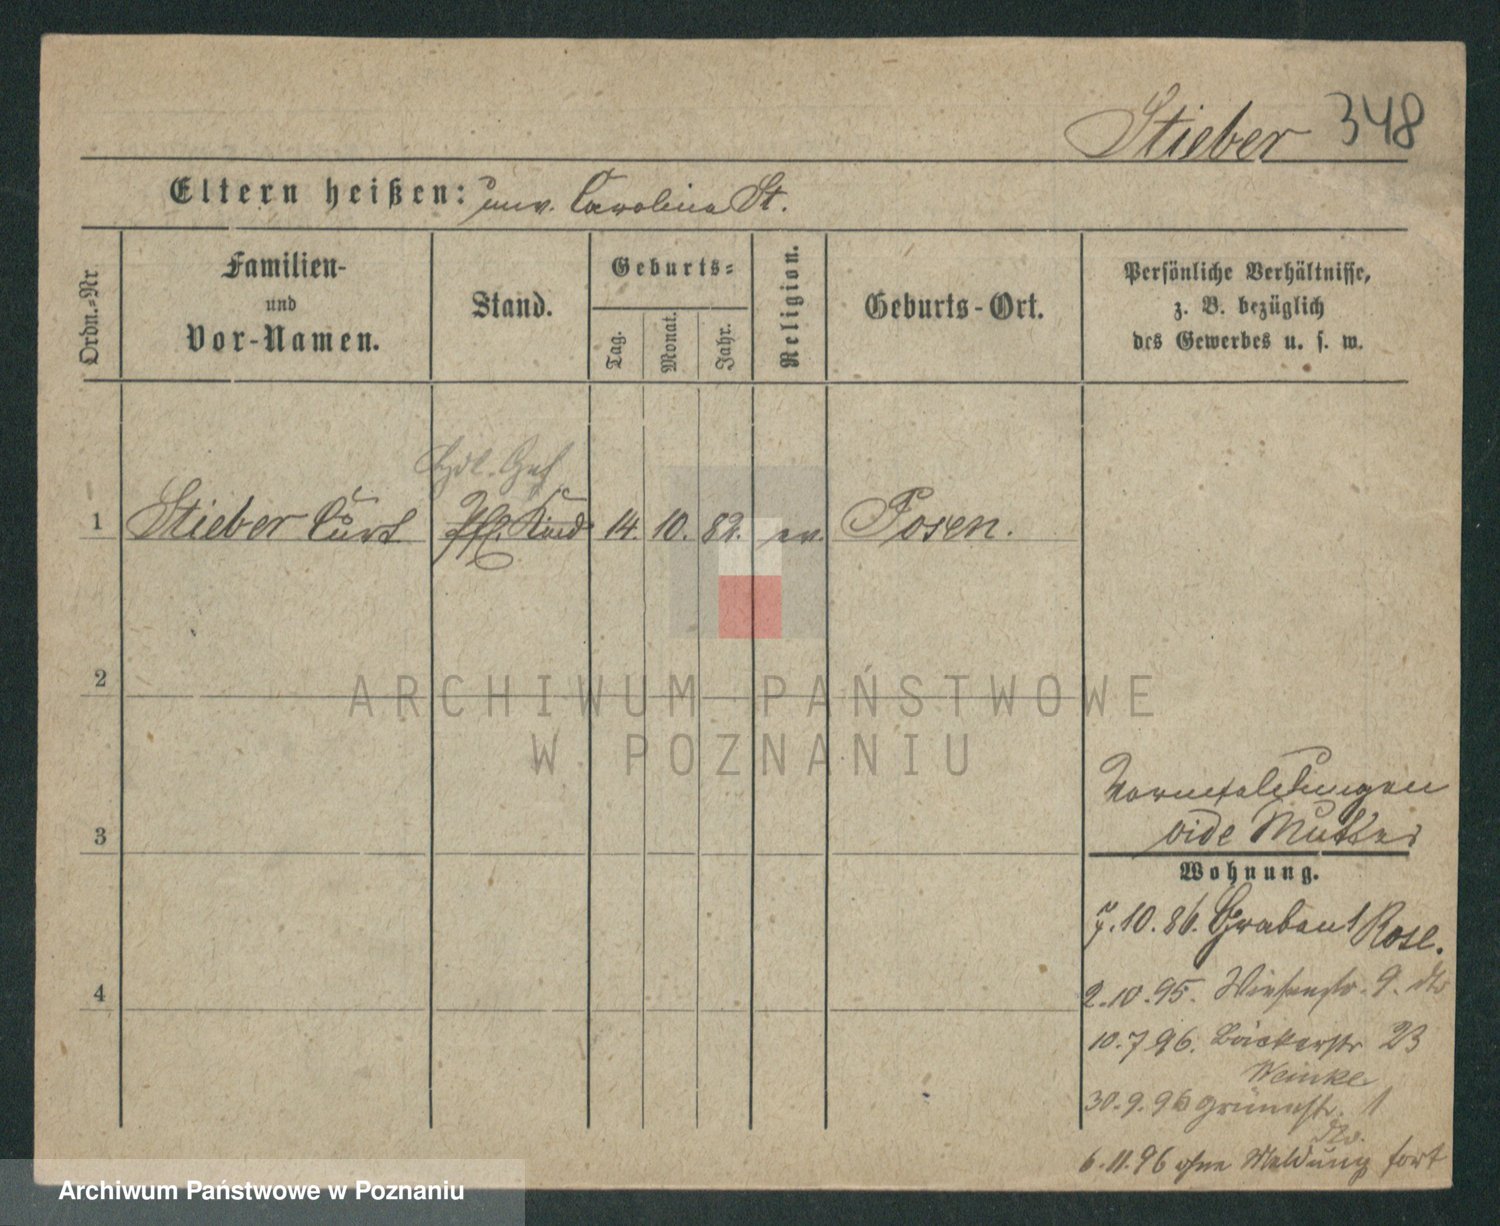 Stieber 348
Eltern heißen: unv. Carolina St.
Ordn.-Nr.
Familien-
und
Vor-Namen.
Stand.
Geburts-
Tag.
Monat.
Jahr.
Religion.
Geburts-Ort.
Persönliche Verhältnisse,
z. B. bezüglich
des Gewerbes u. s. w.
Hdl. Geh
1 Stieber Curt Pfl. Kind 14. 10. 82. ev. Posen.
2
ARCHIWUM PAŃSTWOWE
W POZNANIU
Vormeldungen
3 vide Mutter
Wohnung.
7.10.86. Graben 1 Rose.
4 2.10.95. Wiesenstr. 9. dto
10.7 96. Bäckerstr 23
Weinke
30.9.96 Grünestr. 1
dto.
6.11.96 ohne Meldung fort
Archiwum Państwowe w Poznaniu